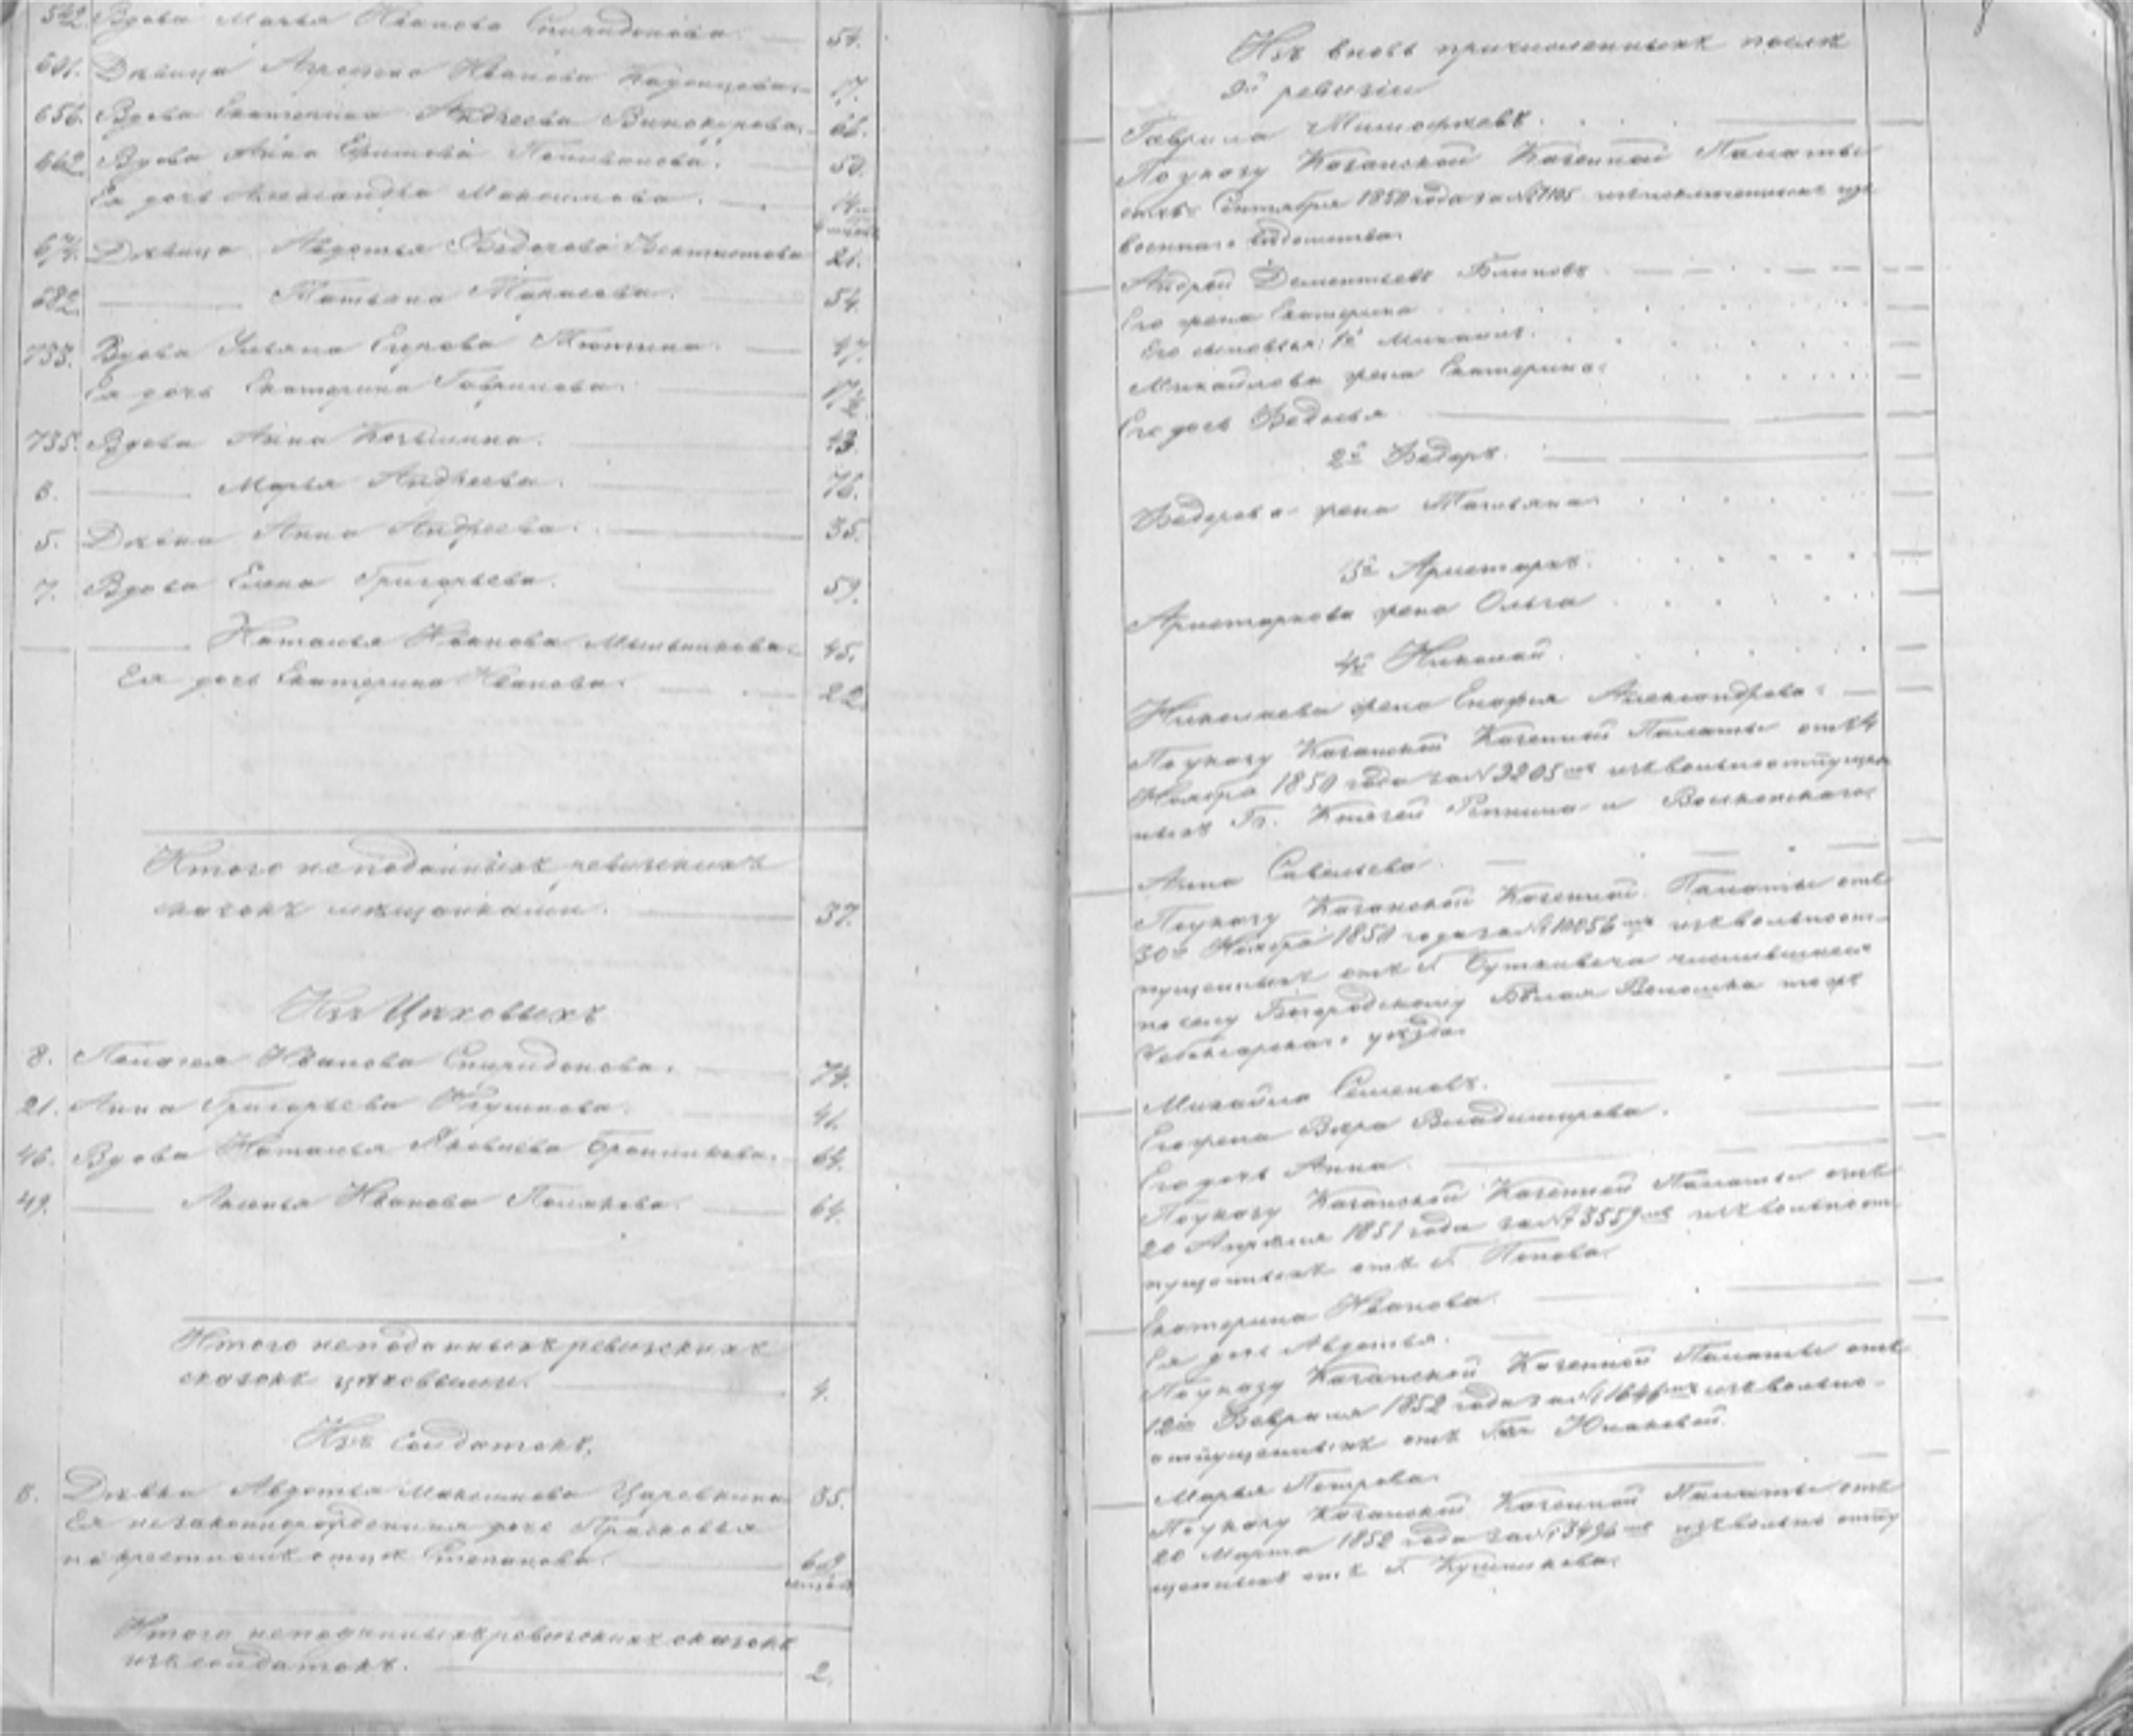 542. Вдова Марья Иванова Спиридонова. 54.
Дѣвица Иванова 17.
656. Вдова Екатерина Андреева Винокурова.
662. Вдова Анна Ефимова 50.
Ея дочь Александра Максимова.
Дѣвица Авдотья Ѳедорова 21.
682. Татьяна 54.
733. Вдова Ульяна Егорова 47.
Ея дочь Екатерина Гаврилова. 17½
735. Вдова Анна Козьмина. 43.
6. Марья Андреева. 76.
5. Дѣвка Анна Андреева. 35.
7. Вдова Елена Григорьева. 59.
Наталья Иванова Мыльникова 45.
Ея дочь Екатерина Иванова. 22.
Итого неподанныхъ ревизскихъ
сказокъ мѣщанками. 37.
Изъ Цѣховыхъ
8. Пелагея Иванова Спиридонова. 74.
21. Анна Григорьева 41.
46. Вдова Наталья Яковлева Бронникова. 64.
49. Иванова Полякова. 64.
Итого неподанныхъ ревизскихъ
сказокъ цѣховыми. 4.
Изъ солдатокъ.
Дѣвка Авдотья Максимова 35.
Ея незаконнорожденная дочь Прасковья
по крестномъ отцѣ Степанова.
Итого неподанныхъ ревизскихъ сказокъ
изъ солдатокъ. 2.
Изъ вновь причисленныхъ послѣ
9й ревизіи
Гаврила Тимофѣевъ.
По указу Казанской Казенной Палаты
Сентября 1850 года за № изъ
военнаго вѣдомства.
Андрей Дементьевъ Блиновъ
Его жена Екатерина
Его сыновья: 1й Михаилъ.
Михайлова жена Екатерина
Его дочь Ѳедосья
2й Ѳедоръ.
Ѳедорова жена Татьяна
3й Аристархъ.
Аристархова жена Ольга
4й Николай.
Николаева жена Александрова
По указу Казанской Казенной Палаты отъ 4
Ноября 1850 года за № 9205 изъ вольноотпущен
ныхъ Гг. Князей Репнина и Волконскаго.
Анна Савельева.
По указу Казанской Казенной Палаты отъ
30го Ноября 1850 года за № 10056 изъ вольноот-
пущенныхъ отъ Г. Буткевича числившаяся
по селу Богородскому Бѣлая Воложка тожъ
Чебоксарскаго уѣзда.
Михайла Семеновъ.
Его жена Вѣра Владимирова.
Его дочь Анна.
По указу Казанской Казенной Палаты отъ
20 Апрѣля 1851 года за № 3559 изъ вольноот
пущенныхъ отъ Г. Попова.
Екатерина Иванова
Ея дочь Авдотья.
По указу Казанской Казенной Палаты отъ
12го Февраля 1852 года за № 1646 изъ вольно-
отпущенныхъ отъ Юнаковой.
Марья Петрова.
По указу Казанской Казенной Палаты отъ
20 Марта 1852 года за № 3496 изъ вольноотпу
щенныхъ отъ Г. Кушникова.